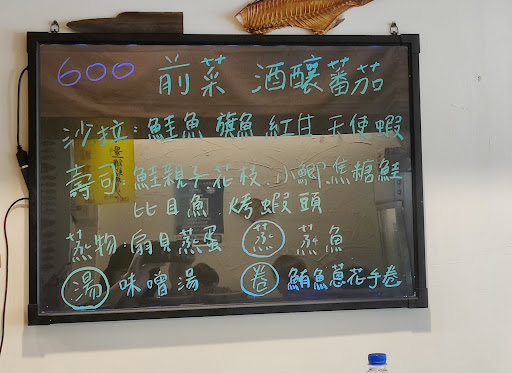 600 前菜 酒釀蕃茄
沙拉:鮭魚 旗魚 紅甘 天使蝦
壽司:鮭親子 花枝 小鯽 焦糖鮭
比目魚 烤蝦頭
蒸物:扇貝蒸蛋 蒸 蒸魚
湯 味噌湯 卷 鮪魚蔥花手卷